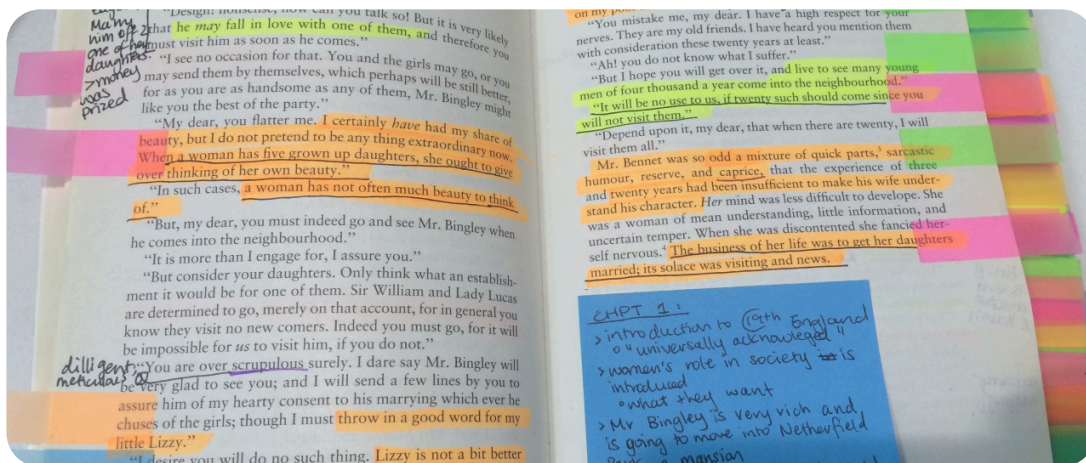 Many
him off 2
one of her
daughters.
> money
was
prized
"Design! nonsense, how can you talk so! But it is very likely
that he may fall in love with one of them, and therefore you
must visit him as soon as he comes."
"I see no occasion for that. You and the girls may go, or you
may send them by themselves, which perhaps will be still better,
for as you are as handsome as any of them, Mr. Bingley might
like you the best of the party."
"My dear, you flatter me. I certainly have had my share of
beauty, but I do not pretend to be any thing extraordinary now.
When a woman has five grown up daughters, she ought to give
over thinking of her own beauty."
"In such cases, a woman has not often much beauty to think
of."
"But, my dear, you must indeed go and see Mr. Bingley when
he comes into the neighbourhood."
"It is more than I engage for, I assure you."
"But consider your daughters. Only think what an establish-
ment it would be for one of them. Sir William and Lady Lucas
are determined to go, merely on that account, for in general you
know they visit no new comers. Indeed you must go, for it will
be impossible for us to visit him, if you do not."
dilligent,
meticulous
"You are over scrupulous surely. I dare say Mr. Bingley will
be very glad to see you; and I will send a few lines by you to
assure him of my hearty consent to his marrying which ever he
chuses of the girls; though I must throw in a good word for my
little Lizzy."
"I desire you will do no such thing. Lizzy is not a bit better
on my poor
"You mistake me, my dear. I have a high respect for your
nerves. They are my old friends. I have heard you mention them
with consideration these twenty years at least."
"Ah! you do not know what I suffer."
"But I hope you will get over it, and live to see many young
men of four thousand a year come into the neighbourhood."
"It will be no use to us, if twenty such should come since you
will not visit them."
"Depend upon it, my dear, that when there are twenty, I will
visit them all."
Mr. Bennet was so odd a mixture of quick parts,³ sarcastic
humour, reserve, and caprice, that the experience of three
and twenty years had been insufficient to make his wife under-
stand his character. Her mind was less difficult to develope. She
was a woman of mean understanding, little information, and
uncertain temper. When she was discontented she fancied her-
self nervous.⁴ The business of her life was to get her daughters
married; its solace was visiting and news.
CHPT 1:
> introduction to 19th England
"universally acknowleged"
> women's role in society is
introduced
what they want
> Mr Bingley is very rich and
is going to move into Netherfield
mansion